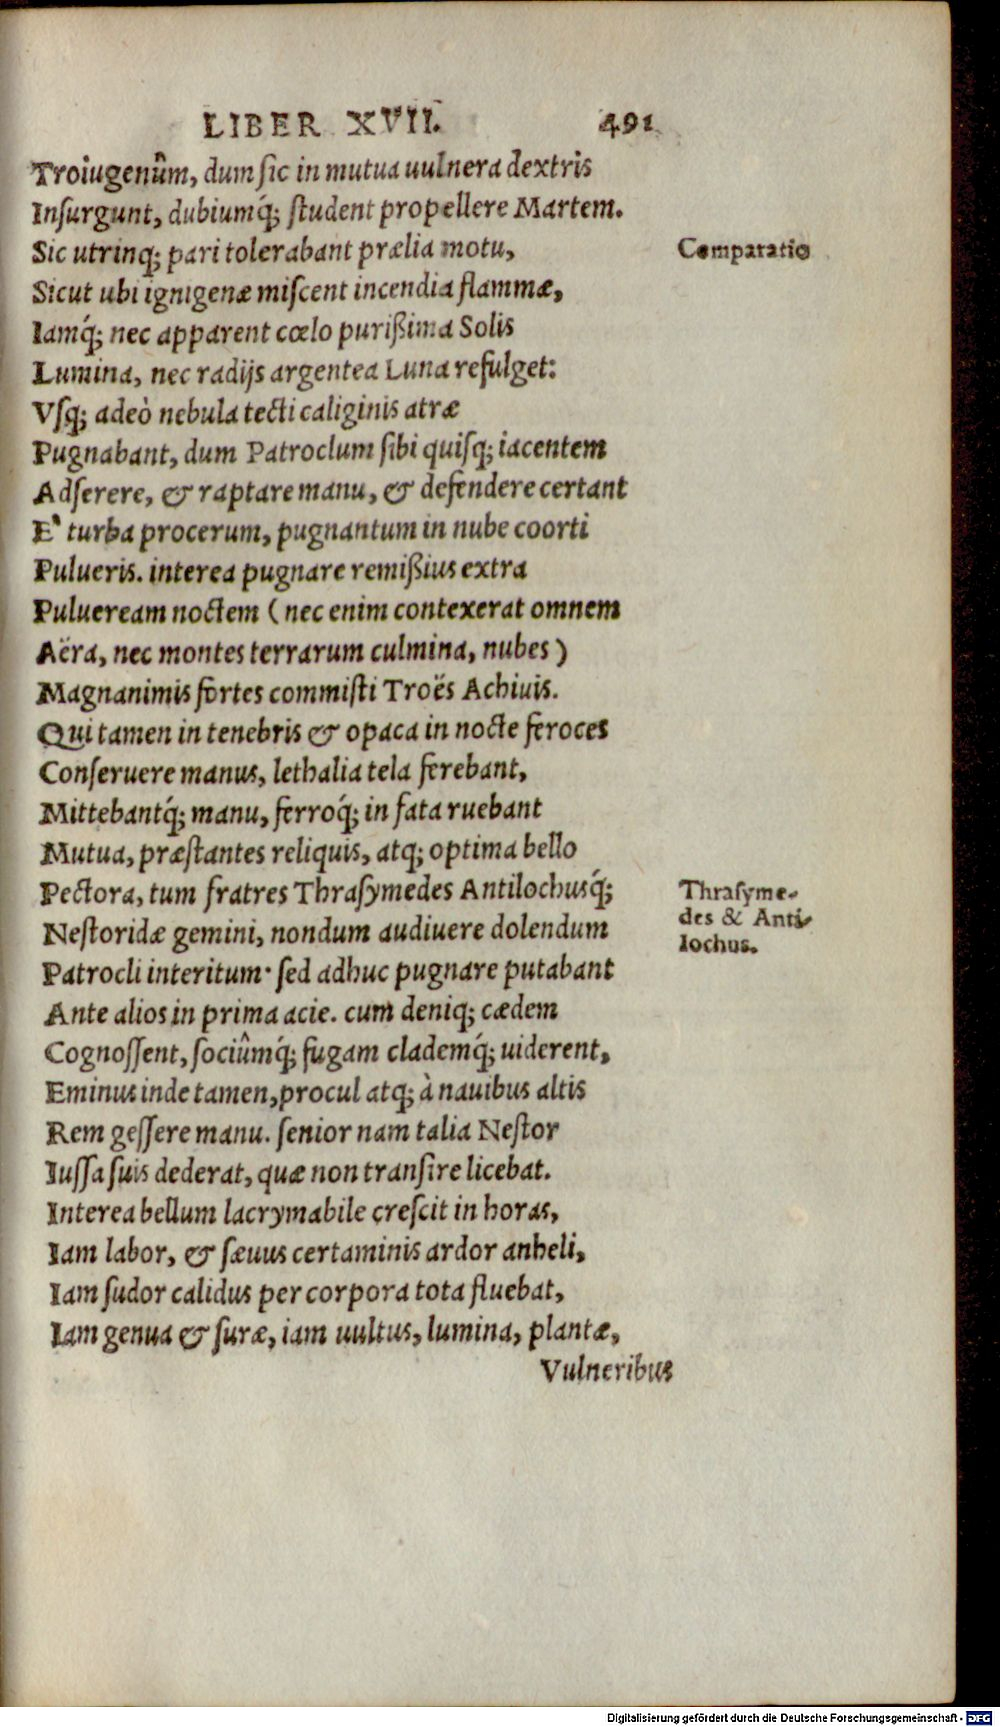 LIBER XVII. 491
Troiugenûm, dum sic in mutua uulnera dextris
Insurgunt, dubiumq́; student propellere Martem.
Sic utrinq; pari tolerabant prælia motu,
Comparatio
Sicut ubi ignigenæ miscent incendia flammæ,
Iamq́; nec apparent cœlo purißima Solis
Lumina, nec radijs argentea Luna refulget:
Vsq; adeò nebula tecti caliginis atræ
Pugnabant, dum Patroclum sibi quisq; iacentem
Adserere, & raptare manu, & defendere certant
E' turba procerum, pugnantum in nube coorti
Pulueris. interea pugnare remißius extra
Pulueream noctem (nec enim contexerat omnem
Aëra, nec montes terrarum culmina, nubes)
Magnanimis fortes commisti Troës Achiuis.
Qui tamen in tenebris & opaca in nocte feroces
Conseruere manus, lethalia tela ferebant,
Mittebantq́; manu, ferroq́; in fata ruebant
Mutua, præstantes reliquis, atq; optima bello
Pectora, tum fratres Thrasymedes Antilochusq́;
Thrasyme-
des & Anti-
lochus.
Nestoridæ gemini, nondum audiuere dolendum
Patrocli interitum· sed adhuc pugnare putabant
Ante alios in prima acie. cum deniq; cædem
Cognossent, sociûmq́; fugam clademq́; uiderent,
Eminus inde tamen, procul atq; à nauibus altis
Rem gessere manu. senior nam talia Nestor
Iussa suis dederat, quæ non transire licebat.
Interea bellum lacrymabile crescit in horas,
Iam labor, & sæuus certaminis ardor anheli,
Iam sudor calidus per corpora tota fluebat,
Iam genua & suræ, iam uultus, lumina, plantæ,
Vulneribus
Digitalisierung gefördert durch die Deutsche Forschungsgemeinschaft - DFG